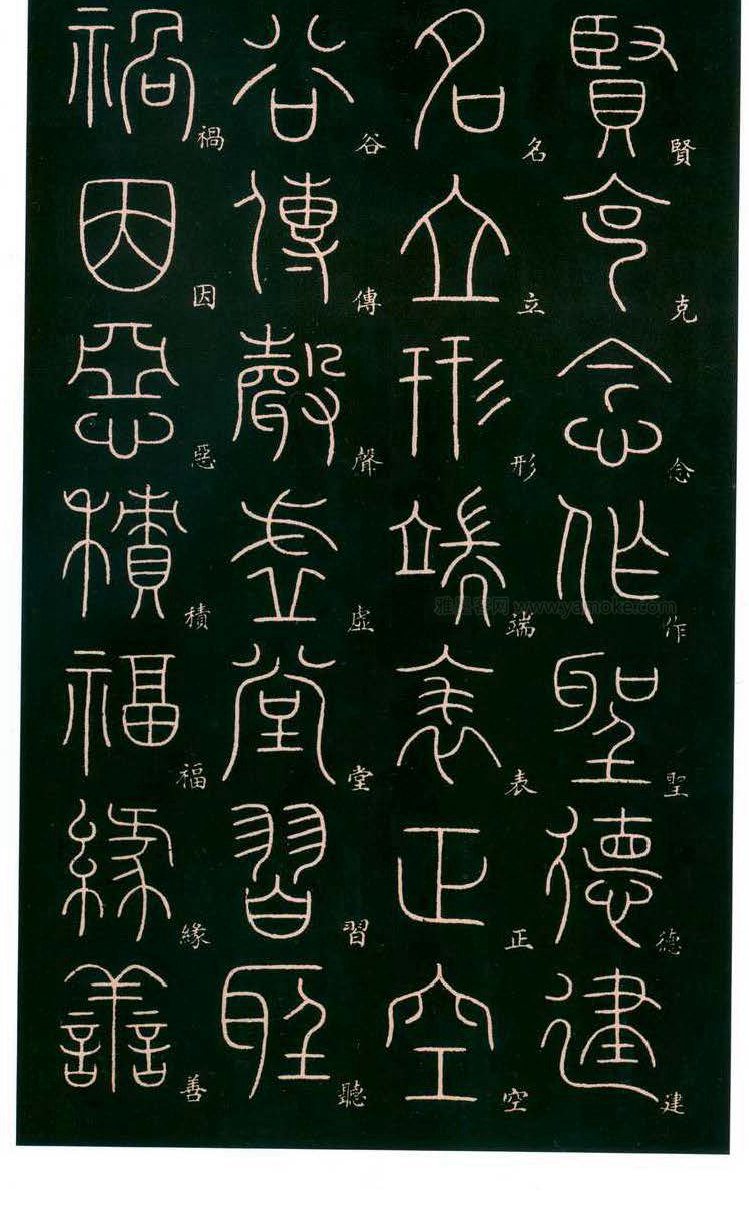 賢克念作聖德建
名立形端表正空
谷傳聲虛堂習聽
禍因惡積福緣善
www.yamoke.com